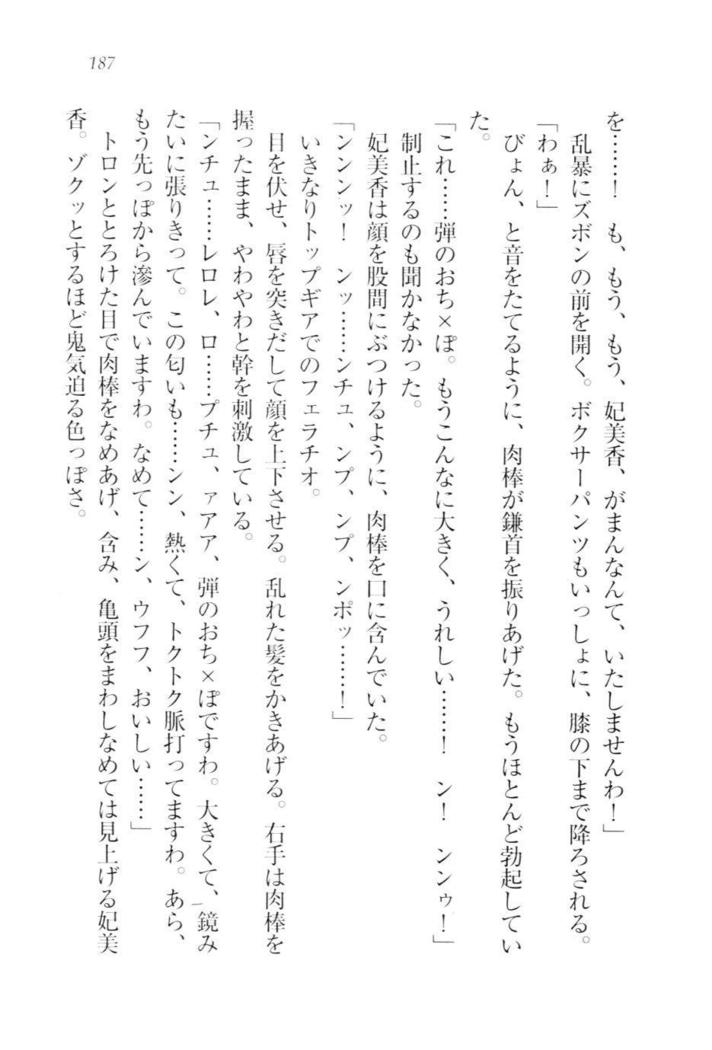 187
を……！　も、もう、もう、妃美香、がまんなんて、いたしませんわ！」
　乱暴にズボンの前を開く。ボクサーパンツもいっしょに、膝の下まで降ろされる。
「わぁ！」
　びょん、と音をたてるように、肉棒が鎌首を振りあげた。もうほとんど勃起してい
た。
「これ……弾のおち×ぽ。もうこんなに大きく、うれしい……！　ン！　ンンゥ！」
　制止するのも聞かなかった。
　妃美香は顔を股間にぶつけるように、肉棒を口に含んでいた。
「ンンンッ！　ンッ……ンチュ、ンプ、ンプ、ンポッ……！」
　いきなりトップギアでのフェラチオ。
　目を伏せ、唇を突きだして顔を上下させる。乱れた髪をかきあげる。右手は肉棒を
握ったまま、やわやわと幹を刺激している。
「ンチュ……レロレ、ロ……プチュ、ァアア、弾のおち×ぽですわ。大きくて、鏡み
たいに張りきって。この匂いも……シン、熱くて、トクトク脈打ってますわ。あら、
もう先っぽから滲んでいますわ。なめて……ン、ウフフ、おいしい……」
　トロンととろけた目で肉棒をなめあげ、含み、亀頭をまわしなめては見上げる妃美
香。ゾクッとするほど鬼気迫る色っぽさ。